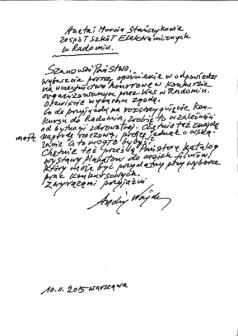 Aneta i Marcin Stańczykowie
Zespół Szkół Elektronicznych
w Radomiu.
Szanowni Państwo,
wybaczcie proszę, opóźnienie w odpowiedzi
na uczestnictwo honorowe w konkursie
organizowanym przez Was w Radomiu.
Oczywiście wyrażam zgodę.
Co do przyjazdu na rozstrzygnięcie kon-
kursu do Radomia, zrobię to w zależności
od sytuacji zdrowotnej. Chętnie też znajdę
moją nagrodę rzeczową, proszę jednak o wska-
zanie co to mogło by być.
Chętnie też prześlę Państwu katalog
wystawy plakatów do moich filmów,
który może być przydatny przy wyborze
prac konkursowych.
Z wyrazami przyjaźni
Andrzej Wajda
10.II.2015 Warszawa